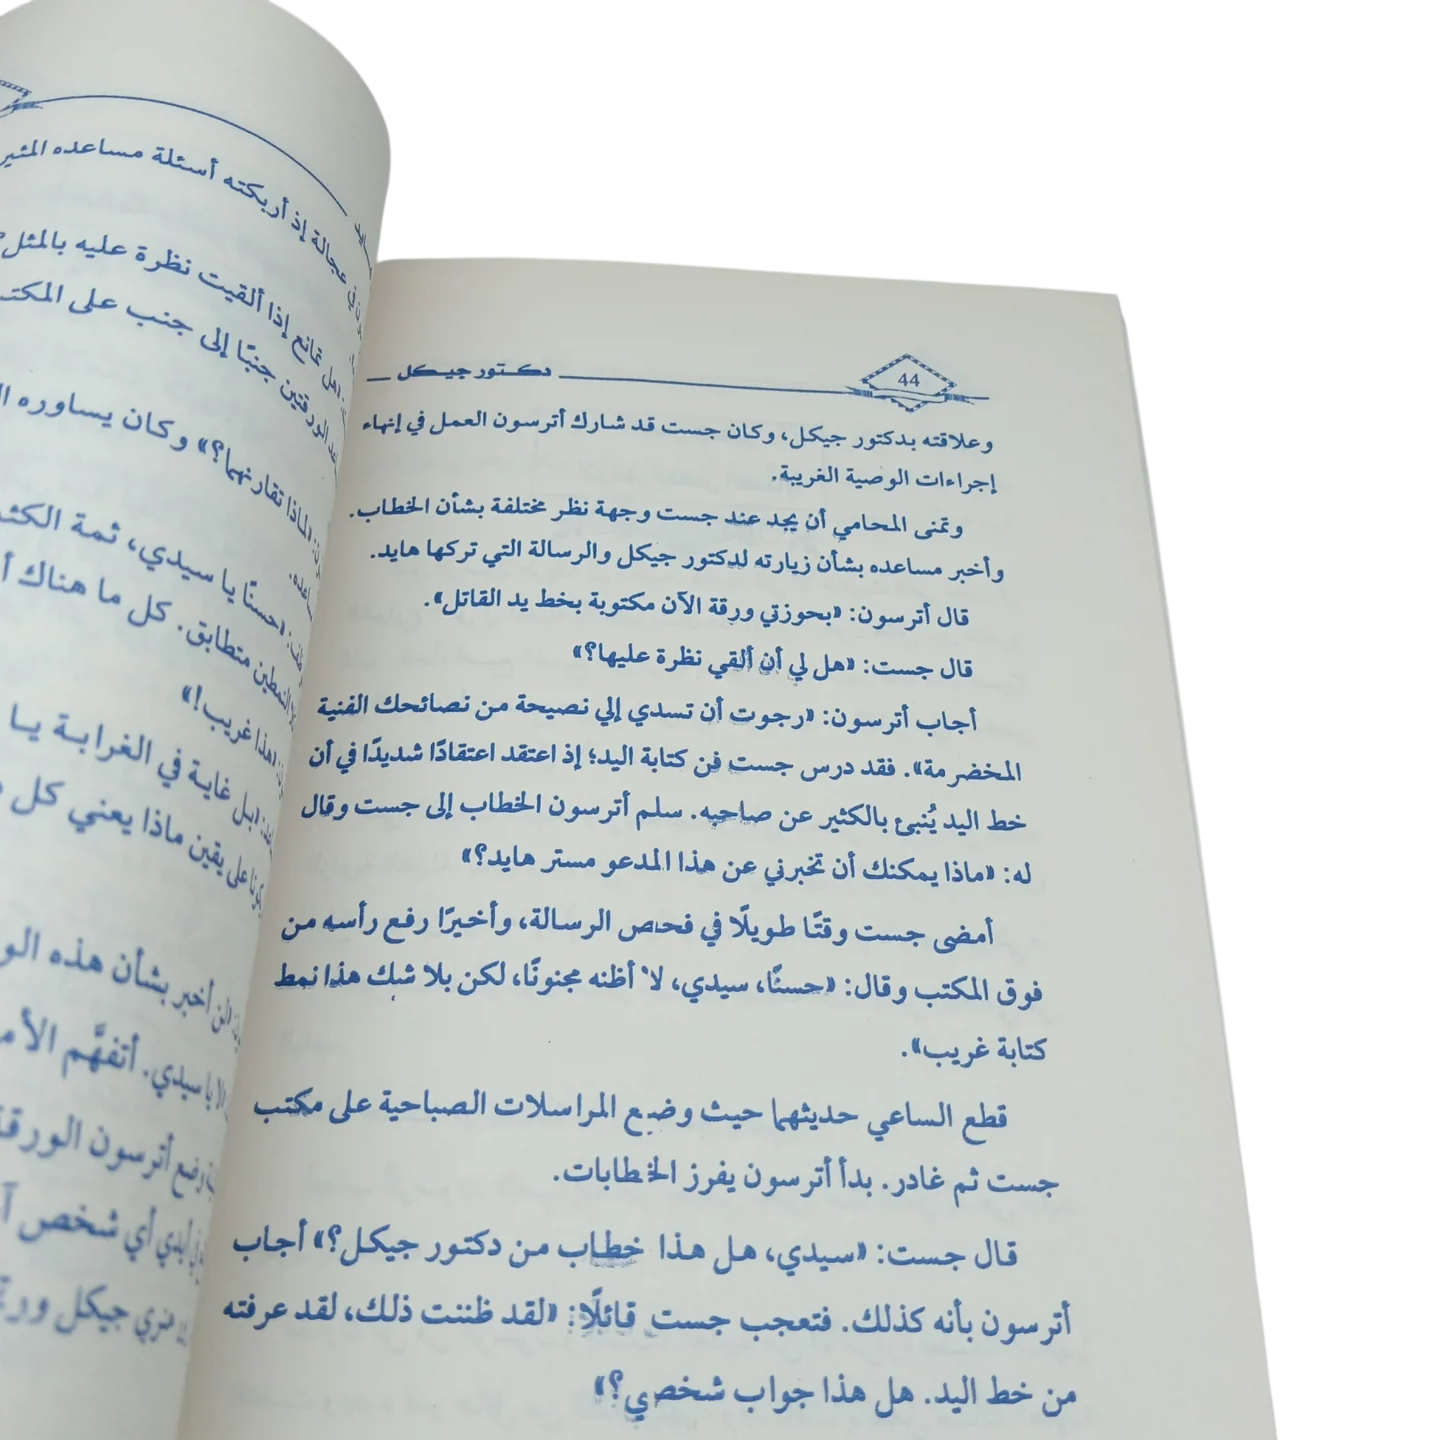 44
دكتور جيكل
وعلاقته بدكتور جيكل، وكان جست قد شارك أترسون العمل في إنهاء
إجراءات الوصية الغريبة.
وتمنى المحامي أن يجد عند جست وجهة نظر مختلفة بشأن الخطاب.
وأخبر مساعده بشأن زيارته لدكتور جيكل والرسالة التي تركها هايد.
قال أترسون: «بحوزتي ورقة الآن مكتوبة بخط يد القاتل».
قال جست: «هل لي أن ألقي نظرة عليها؟»
أجاب أترسون: «رجوت أن تسدي إلي نصيحة من نصائحك الفنية
المخضرمة». فقد درس جست فن كتابة اليد؛ إذ اعتقد اعتقادًا شديدًا في أن
خط اليد يُنبئ بالكثير عن صاحبه. سلم أترسون الخطاب إلى جست وقال
له: «ماذا يمكنك أن تخبرني عن هذا المدعو مستر هايد؟»
أمضى جست وقتًا طويلًا في فحص الرسالة، وأخيرًا رفع رأسه من
فوق المكتب وقال: «حسنًا، سيدي، لا أظنه مجنونًا، لكن بلا شك هذا نمط
كتابة غريب».
قطع الساعي حديثهما حيث وضع المراسلات الصباحية على مكتب
جست ثم غادر. بدأ أترسون يفرز الخطابات.
قال جست: «سيدي، هل هذا خطاب من دكتور جيكل؟» أجاب
أترسون بأنه كذلك. فتعجب جست قائلًا: «لقد ظننت ذلك، لقد عرفته
من خط اليد. هل هذا جواب شخصي؟»
عجالة إذ أربكته أسئلة مساعده
هل تمانع إذا ألقيت نظرة عليه بالمثل
الورقتين جنبًا إلى جنب على
«لماذا تقارنهما؟» وكان يساوره
«حسنًا يا سيدي، ثمة
النمطين متطابق. كل ما هناك
«هذا غريب!»
«بل غاية في الغرابة يا
على يقين ماذا يعني كل
«لن أخبر بشأن هذه
يا سيدي. أتفهَّم
رفع أترسون
أيدي أي شخص
جيكل